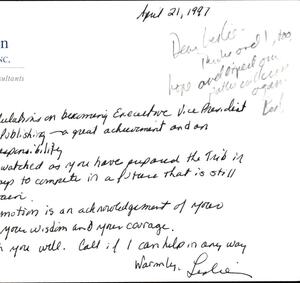 April 21, 1997
n
INC.
sultants
Dear Leslie -
and I, too,
hope
again.
ulations on becoming Executive Vice President
Publishing - a great achievement and an
esponsibility
watched as you have prepared the Trib in
ays to compete in a future that is still
motion is an acknowledgement of your
your wisdom and your courage.
you well. Call if I can help in any way
Warmly,
Leslie